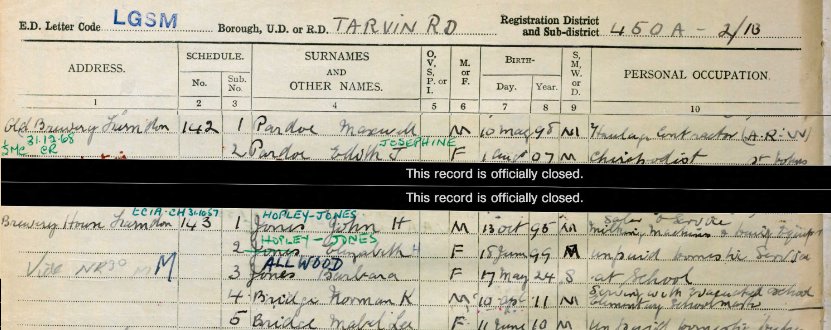 E.D. Letter Code LGSM Borough, U.D. or R.D. TARVIN RD Registration District and Sub-district 450A - 2/1B
ADDRESS. SCHEDULE. SURNAMES AND OTHER NAMES. O, V, S, P. or I. M. or F. BIRTH- S, M, W, or D. PERSONAL OCCUPATION.
No. Sub. No. Day. Year.
1 2 3 4 5 6 7 8 9 10
Old Brewery 142 1 Pardoe Maxwell M 98 M Haulage Contractor (A.R.W)
31.12.68 JOSEPHINE
SMC CR 2 Pardoe Edith J F 1 Aug 07 M Chiropodist
This record is officially closed.
This record is officially closed.
HOPLEY-JONES Sales & Service
Brewery House 143 1 Jones John H M 13 Oct 95 M Milking Machines & Dairy
HOPLEY-JONES
2 Jones Elizabeth H F 15 June 99 M unpaid domestic
ALLWOOD
M 3 Jones Barbara F 17 May 24 S at School
4 Bridge Norman K M 10 11 M Serving with evacuated school
Elementary Schoolmaster
5 Bridge Mabel F 11 June 10 M Unpaid domestic